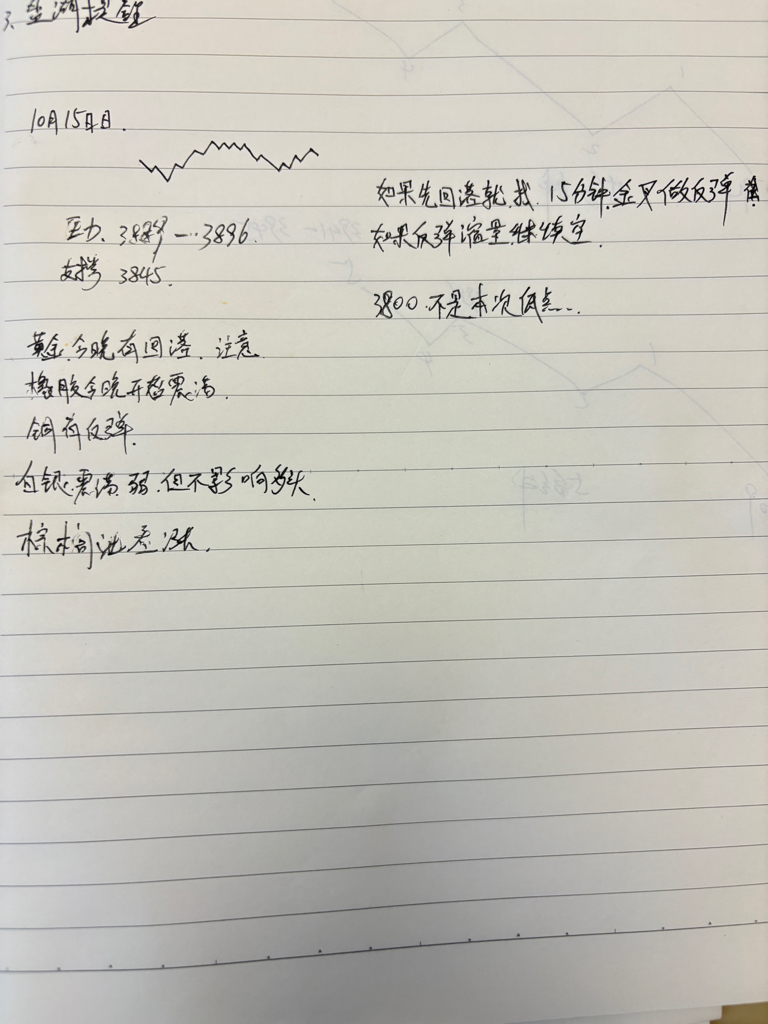 3、盐湖提锂
10月15日日.
压力. 388 — 3896.
支撑 3845.
如果先回落就找 15分钟金叉做反弹
如果反弹缩量继续空.
3800 不是本次低点...
黄金.今晚有回落. 注意
橡胶今晚开盘震荡.
铜有反弹.
白银.震荡.弱.但不影响多头.
棕榈油看涨.